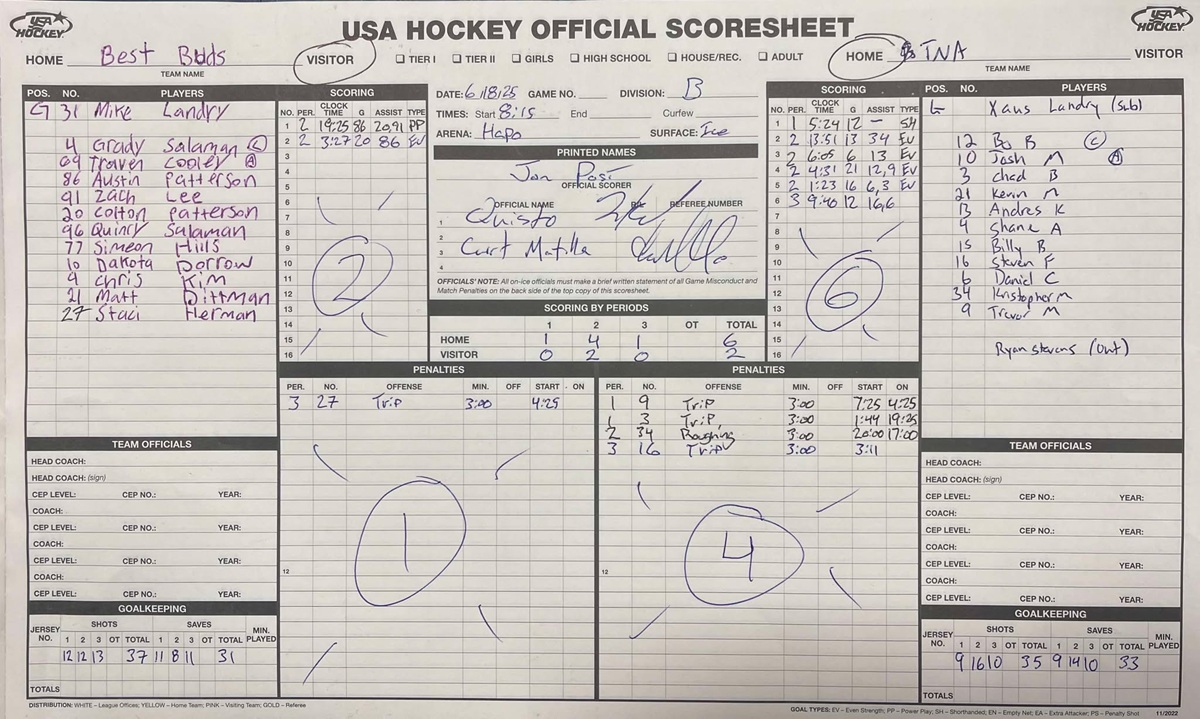 USA HOCKEY
USA HOCKEY OFFICIAL SCORESHEET
USA HOCKEY
HOME Best Buds VISITOR
TEAM NAME
☐ TIER I ☐ TIER II ☐ GIRLS ☐ HIGH SCHOOL ☐ HOUSE/REC. ☐ ADULT
HOME TNA VISITOR
TEAM NAME
POS. NO. PLAYERS
G 31 Mike Landry
4 Grady Salaman C
69 Traven Cooley A
86 Austin Patterson
91 Zach Lee
20 Colton Patterson
96 Quincy Salaman
77 Simeon Hills
10 Dakota Dorrow
9 Chris Kim
21 Matt Dittman
27 Staci Herman
SCORING
NO. PER. CLOCK TIME G ASSIST TYPE
1 2 19:25 86 20,91 PP
2 2 3:27 20 86 EV
3
4
5
6
7
8
9
10
11
12
13
14
15
16
2
DATE: 6/8/25 GAME NO. DIVISION: B
TIMES: Start 8:15 End Curfew
ARENA: Hapo SURFACE: Ice
PRINTED NAMES
Jon Posi
OFFICIAL SCORER
OFFICIAL NAME REFEREE NUMBER
1 Quisto
2
3 Curt Matilla
4
OFFICIALS' NOTE: All on-ice officials must make a brief written statement of all Game Misconduct and
Match Penalties on the back side of the top copy of this scoresheet.
SCORING BY PERIODS
1 2 3 OT TOTAL
HOME 1 4 1 6
VISITOR 0 2 0 2
SCORING
NO. PER. CLOCK TIME G ASSIST TYPE
1 1 5:24 12 – SH
2 2 13:51 13 34 EV
3 2 6:05 6 13 EV
4 2 4:31 21 12,9 EV
5 2 1:23 16 6,3 EV
6 3 9:40 12 16,6
7
8
9
10
11
12
13
14
15
16
6
POS. NO. PLAYERS
G Xaus Landry (sub)
12 Bo B C
10 Josh M A
3 Chad B
21 Kevin M
13 Andres K
4 Shane A
15 Billy B
16 Steven F
6 Daniel C
34 Kristopher M
9 Trevor M
Ryan Stevens (out)
PENALTIES
PER. NO. OFFENSE MIN. OFF START ON
3 27 Trip 3:00 4:25
12
1
PENALTIES
PER. NO. OFFENSE MIN. OFF START ON
1 9 Trip 3:00 7:25 4:25
1 3 Trip 3:00 1:44 19:25
2 34 Roughing 3:00 20:00 17:00
3 16 Trip 3:00 3:11
12
4
TEAM OFFICIALS
HEAD COACH:
HEAD COACH: (sign)
CEP LEVEL: CEP NO.: YEAR:
COACH:
CEP LEVEL: CEP NO.: YEAR:
COACH:
CEP LEVEL: CEP NO.: YEAR:
COACH:
CEP LEVEL: CEP NO.: YEAR:
GOALKEEPING
JERSEY NO. SHOTS SAVES MIN. PLAYED
1 2 3 OT TOTAL 1 2 3 OT TOTAL
12 12 13 37 11 8 11 31
TOTALS
TEAM OFFICIALS
HEAD COACH:
HEAD COACH: (sign)
CEP LEVEL: CEP NO.: YEAR:
COACH:
CEP LEVEL: CEP NO.: YEAR:
COACH:
CEP LEVEL: CEP NO.: YEAR:
COACH:
CEP LEVEL: CEP NO.: YEAR:
GOALKEEPING
JERSEY NO. SHOTS SAVES MIN. PLAYED
1 2 3 OT TOTAL 1 2 3 OT TOTAL
9 16 10 35 9 14 10 33
TOTALS
DISTRIBUTION: WHITE – League Offices; YELLOW – Home Team; PINK – Visiting Team; GOLD – Referee
GOAL TYPES: EV – Even Strength; PP – Power Play; SH – Shorthanded; EN – Empty Net; EA – Extra Attacker; PS – Penalty Shot 11/2022